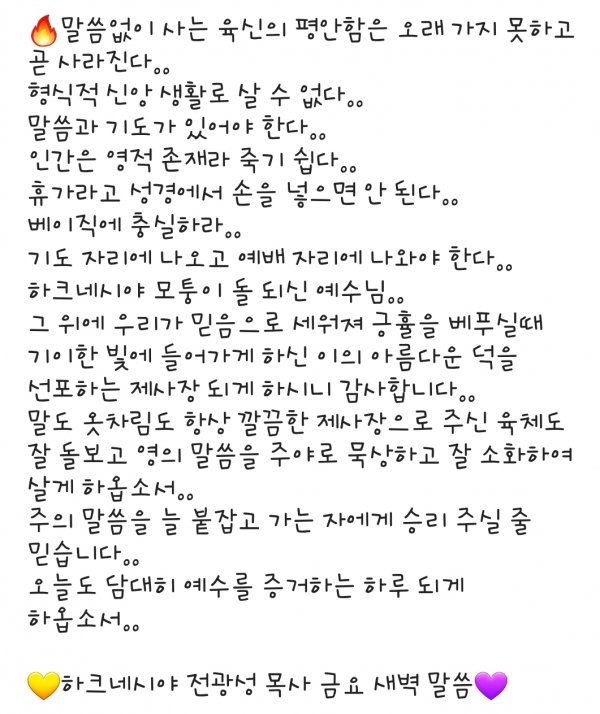 🔥말씀없이 사는 육신의 평안함은 오래 가지 못하고
곧 사라진다。。
형식적 신앙 생활로 살 수 없다。。
말씀과 기도가 있어야 한다。。
인간은 영적 존재라 죽기 쉽다。。
휴가라고 성경에서 손을 넣으면 안 된다。。
베이직에 충실하라。。
기도 자리에 나오고 예배 자리에 나와야 한다。。
하크네시야 모퉁이 돌 되신 예수님。。
그 위에 우리가 믿음으로 세워져 긍휼을 베푸실때
기이한 빛에 들어가게 하신 이의 아름다운 덕을
선포하는 제사장 되게 하시니 감사합니다。。
말도 옷차림도 항상 깔끔한 제사장으로 주신 육체도
잘 돌보고 영의 말씀을 주야로 묵상하고 잘 소화하여
살게 하옵소서。。
주의 말씀을 늘 붙잡고 가는 자에게 승리 주실 줄
믿습니다。。
오늘도 담대히 예수를 증거하는 하루 되게
하옵소서。。
💛하크네시야 전광성 목사 금요 새벽 말씀💜